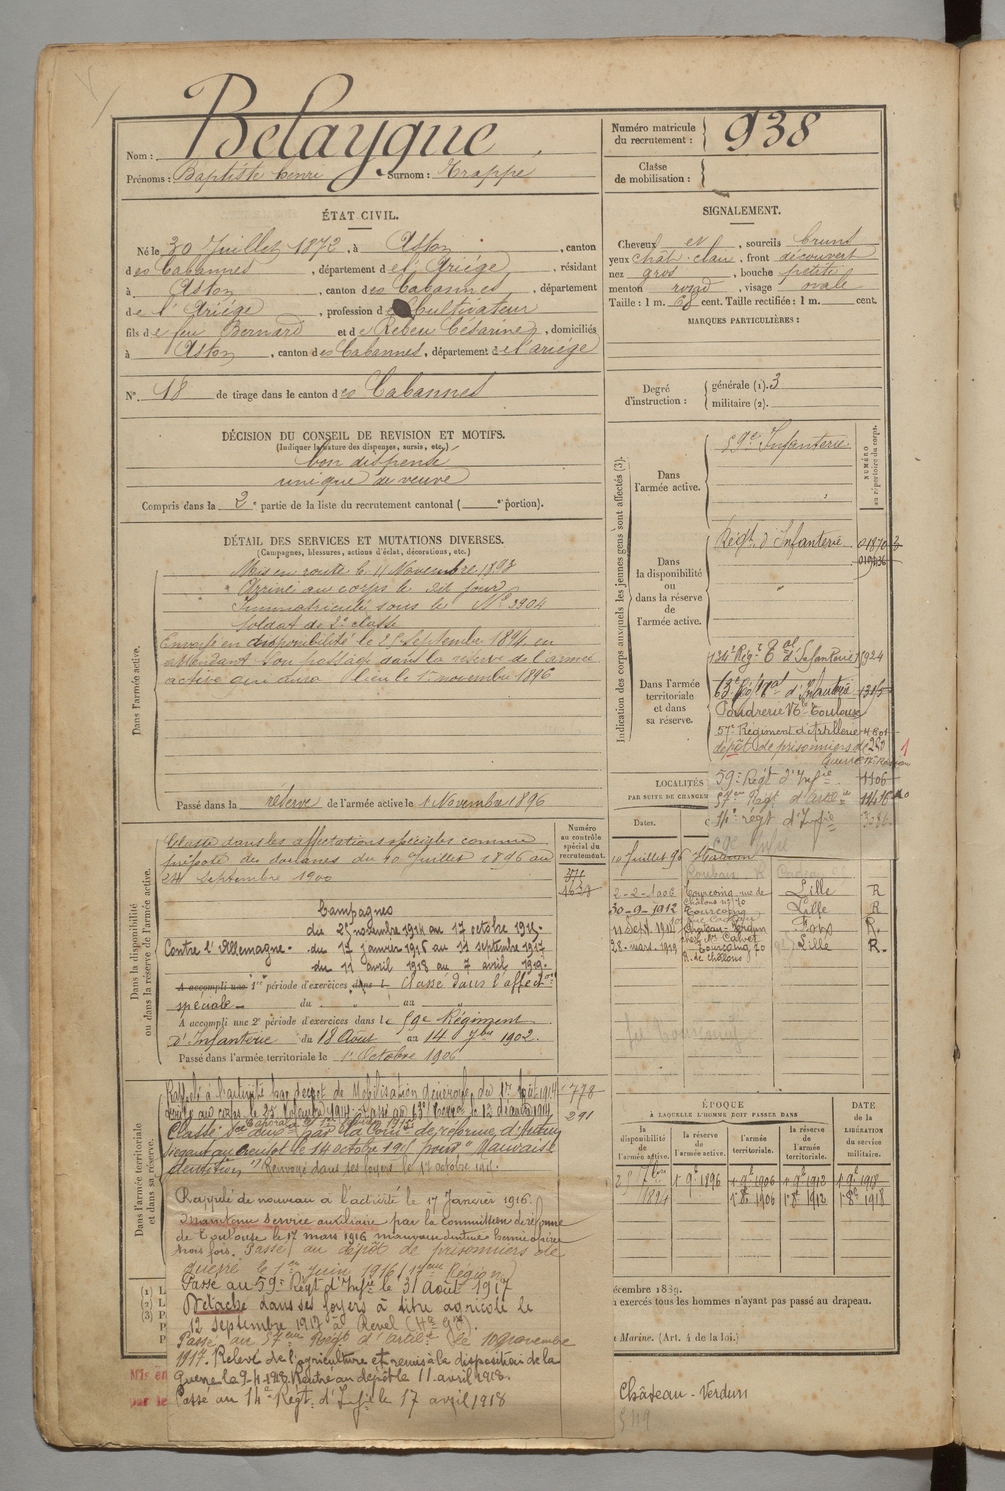 Nom : Belaygue
Prénoms : Baptiste Henri Surnom : Trappé
Numéro matricule du recrutement : 938
Classe de mobilisation :
ÉTAT CIVIL.
Né le 30 Juillet 1872, à Aston, canton
des Cabannes, département de l'Ariège, résidant
à Aston, canton des Cabannes, département
de l'Ariège, profession de Cultivateur
fils de feu Bernard et de Rebeu Césarine, domiciliés
à Aston, canton des Cabannes, département de l'ariège
N° 18 de tirage dans le canton des Cabannes
DÉCISION DU CONSEIL DE REVISION ET MOTIFS.
(Indiquer la nature des dispenses, sursis, etc.)
bon dispensé
unique de veuve
Compris dans la 2e partie de la liste du recrutement cantonal ( e portion).
SIGNALEMENT.
Cheveux et, sourcils bruns
yeux chât. clair, front découvert
nez gros, bouche petite
menton rond, visage ovale
Taille : 1 m. 68 cent. Taille rectifiée : 1 m. cent.
MARQUES PARTICULIÈRES :
Degré d'instruction :
générale (1). 3
militaire (2).
DÉTAIL DES SERVICES ET MUTATIONS DIVERSES.
(Campagnes, blessures, actions d'éclat, décorations, etc.)
Dans l'armée active.
Mis en route le 11 Novembre 1893
Arrivé au corps le dit jour
Immatriculé sous le N° 3904
Soldat de 2e classe
Envoyé en disponibilité le 25 Septembre 1894 en
attendant son passage dans la réserve de l'armée
active qui aura lieu le 1er novembre 1896
Passé dans la réserve de l'armée active le 1 Novembre 1896
Dans la disponibilité ou dans la réserve de l'armée active.
Numéro au contrôle spécial du recrutement.
Classé dans les affectations spéciales comme
préposé des douanes du 10 Juillet 1896 au
24 Septembre 1900
Campagnes
du 25 novembre 1914 au 17 octobre 1915.
Contre l'Allemagne. du 17 janvier 1916 au 12 septembre 1917
du 11 avril 1918 au 7 avril 1919.
A accompli une 1re période d'exercices dans l Classé dans l'affecton
spéciale du " au "
A accompli une 2e période d'exercices dans le 59e Régiment
d'Infanterie du 18 Août au 14 7bre 1902.
Passé dans l'armée territoriale le 1er Octobre 1906
Dans l'armée territoriale et dans sa réserve.
Rappelé à l'activité par décret de Mobilisation générale du 1er Août 1914 778
Arrivé au corps le 25 Novembre 1914. Passé au 63e Territ le 12 décembre 1914 291
Classé Sce auxre par la Comon de réforme d'Autun
siégeant au Creusot le 14 octobre 1915 pour "Mauvaise
dentition" Renvoyé dans ses foyers le 17 octobre 1915.
Rappelé de nouveau à l'activité le 17 Janvier 1916
Maintenu service auxiliaire par la commission de réforme
de Toulouse le 17 mars 1916 mauvaise denture hernie opérée
trois fois. Passé au dépôt de prisonniers de
guerre le 1er Juin 1916 (17eme Région)
Passé au 59e Régt d'Infie le 31 Août 1917
Détaché dans ses foyers à titre agricole le
12 septembre 1917 à Revel (Hte Gne).
Passé au 57eme Régt d'artie le 10 novembre
1917. Relevé de l'agriculture et remis à la disposition de la
Guerre le 9-4-1918. Rentré au dépôt le 11 avril 1918.
Passé au 14e Régt d'Infie le 17 avril 1918
Indication des corps auxquels les jeunes gens sont affectés (3).
NUMÉRO au répertoire du corps.
Dans l'armée active.
59e Infanterie
Dans la disponibilité ou dans la réserve de l'armée active.
Régt d'Infanterie
Dans l'armée territoriale et dans sa réserve.
134e Régt Tal d'Infanterie 1924
63e Régt Tal d'Infanterie 1315
Poudrerie Nle Toulouse
57e Régiment d'Artillerie
dépôt de prisonniers de guerre 17e Région
59e Régt d'Infie 1106
57eme Régt d'artie
14e régt d'Infie
LOCALITÉS
PAR SUITE DE CHANGEM
Dates.
10 Juillet 96
2-2-1906 Tourcoing rue de Châlons n° 70 Lille R
30-9-1912 Tourcoing Lille R
Château-Verdun chez Mr Calvet Foix R.
28 mars 1919 Tourcoing 70 R. de Châlons Lille R.
ÉPOQUE
À LAQUELLE L'HOMME DOIT PASSER DANS
DATE DE LA LIBÉRATION du service militaire.
la disponibilité de l'armée active.
la réserve de l'armée active.
l'armée territoriale.
la réserve de l'armée territoriale.
25 7bre 1894 1er 9e 1896 1er 9e 1906 1er 9e 1912 1er 9e 1918
1er 8e 1906 1er 8e 1912 1er 8e 1918
écembre 1889.
à exercés tous les hommes n'ayant pas passé au drapeau.
e Marine. (Art. 4 de la loi.)
Château-Verdun
Mis en
par le